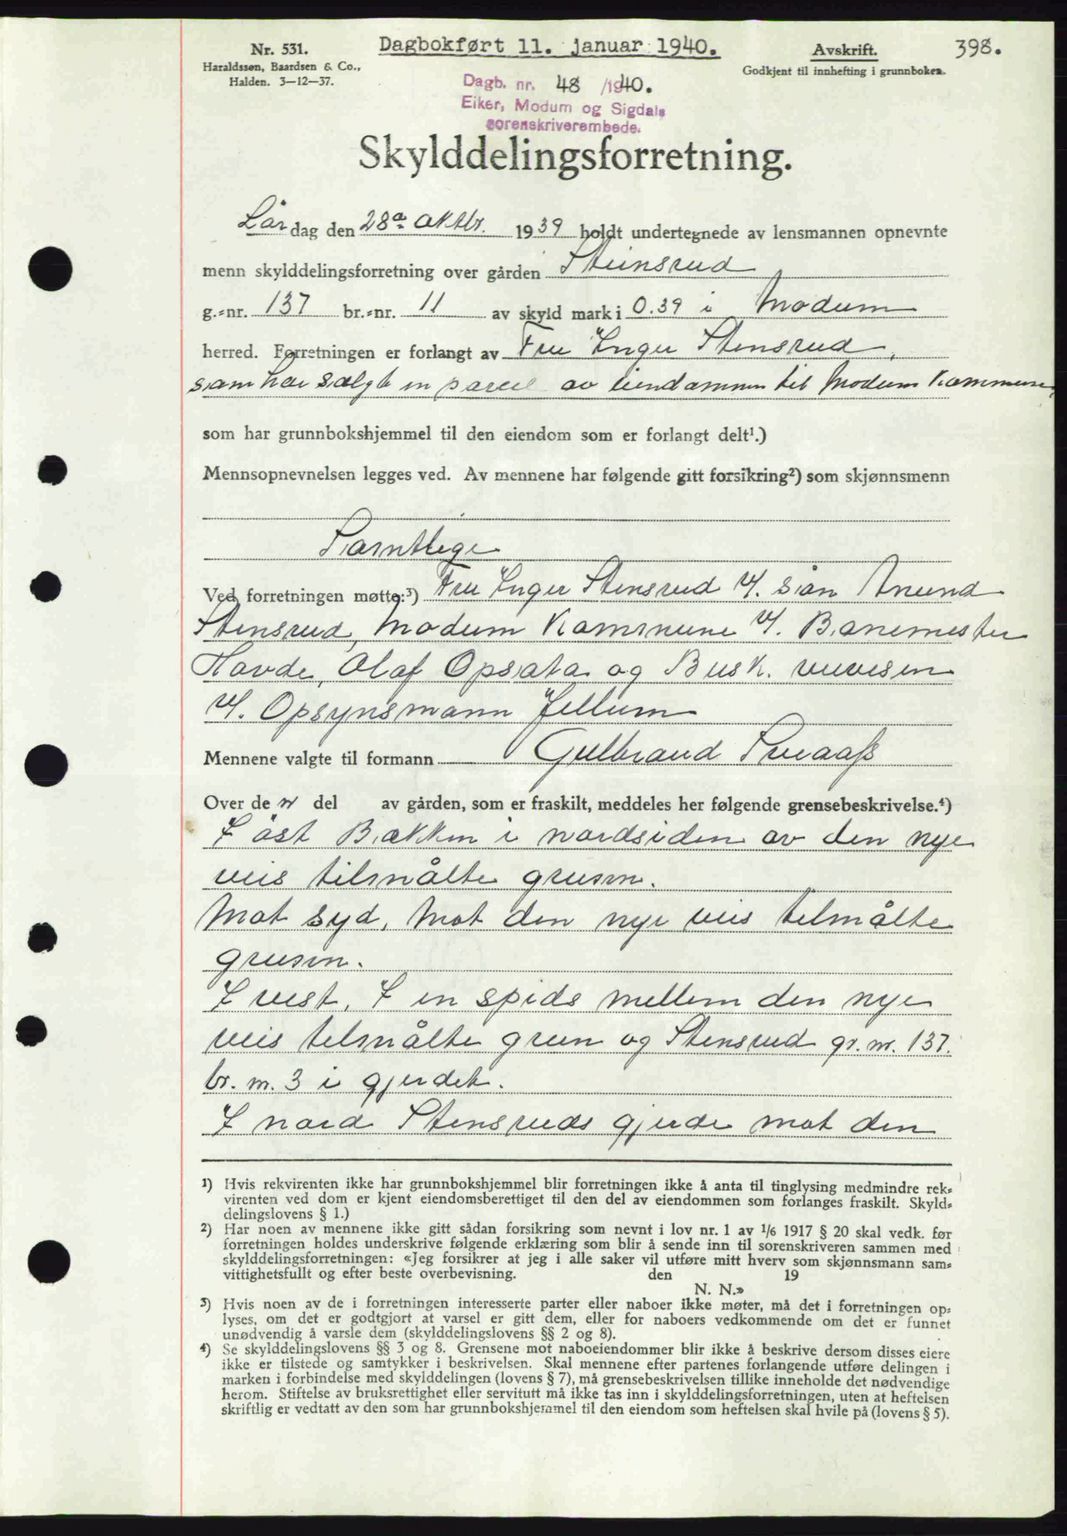 Nr. 531.
Haraldssøn, Baardsen & Co.,
Halden. 3—12—37.
Dagbokført 11. januar 1940.
Avskrift.
Godkjent til innhefting i grunnboken.
398.
Dagb. nr. 48 /1940.
Eiker, Modum og Sigdals
sorenskriverembede.
Skylddelingsforretning.
Lördag den 28de oktbr. 1939 holdt undertegnede av lensmannen opnevnte
menn skylddelingsforretning over gården Steinsrud
g.-nr. 137 br.-nr. 11 av skyld mark i 0.39 i Modum
herred. Forretningen er forlangt av Fru Inger Stensrud,
som har solgt en parcel av eiendommen til Modum Kommune,
som har grunnbokshjemmel til den eiendom som er forlangt delt¹.)
Mennsopnevnelsen legges ved. Av mennene har følgende gitt forsikring²) som skjønnsmenn
Samtlige
Ved forretningen møtte:³) Fru Inger Stensrud v/. sön Anund
Stensrud, Modum Kommune v/. Banemester
Hovde, Olaf Opsata og Busk. veivesen
v/. Opsynsmann Jellum
Mennene valgte til formann Gulbrand Sveaass
Over de n del av gården, som er fraskilt, meddeles her følgende grensebeskrivelse.⁴)
I öst Bækken i nordsiden av den nye
veis tilmålte grusen.
Mot syd, Mot den nye veis tilmålte
grusen.
I vest, I en spids mellem den nye
veis tilmålte grun og Stensrud gr. nr. 137.
br. nr. 3 i gjerdet.
I nord Stensruds gjerde mot den
¹) Hvis rekvirenten ikke har grunnbokshjemmel blir forretningen ikke å anta til tinglysing medmindre rek-
virenten ved dom er kjent eiendomsberettiget til den del av eiendommen som forlanges fraskilt. Skyld-
delingslovens § 1.)
²) Har noen av mennene ikke gitt sådan forsikring som nevnt i lov nr. 1 av ¹/₆ 1917 § 20 skal vedk. før
forretningen holdes underskrive følgende erklæring som blir å sende inn til sorenskriveren sammen med
skylddelingsforretningen: «Jeg forsikrer at jeg i alle saker vil utføre mitt hverv som skjønnsmann sam-
vittighetsfullt og efter beste overbevisning. den 19
N. N.»
³) Hvis noen av de i forretningen interesserte parter eller naboer ikke møter, må det i forretningen op-
lyses, om det er godtgjort at varsel er gitt dem, eller for naboers vedkommende om det er funnet
unødvendig å varsle dem (skylddelingslovens §§ 2 og 8).
⁴) Se skylddelingslovens §§ 3 og 8. Grensene mot naboeiendommer blir ikke å beskrive dersom disses eiere
ikke er tilstede og samtykker i beskrivelsen. Skal mennene efter partenes forlangende utføre delingen i
marken i forbindelse med skylddelingen (lovens § 7), må grensebeskrivelsen tillike inneholde det nødvendige
herom. Stiftelse av bruksrettighet eller servitutt må ikke tas inn i skylddelingsforretningen, uten at heftelsen
skriftlig er vedtatt av den som har grunnbokshjemmel til den eiendom som heftelsen skal hvile på (lovens § 5).